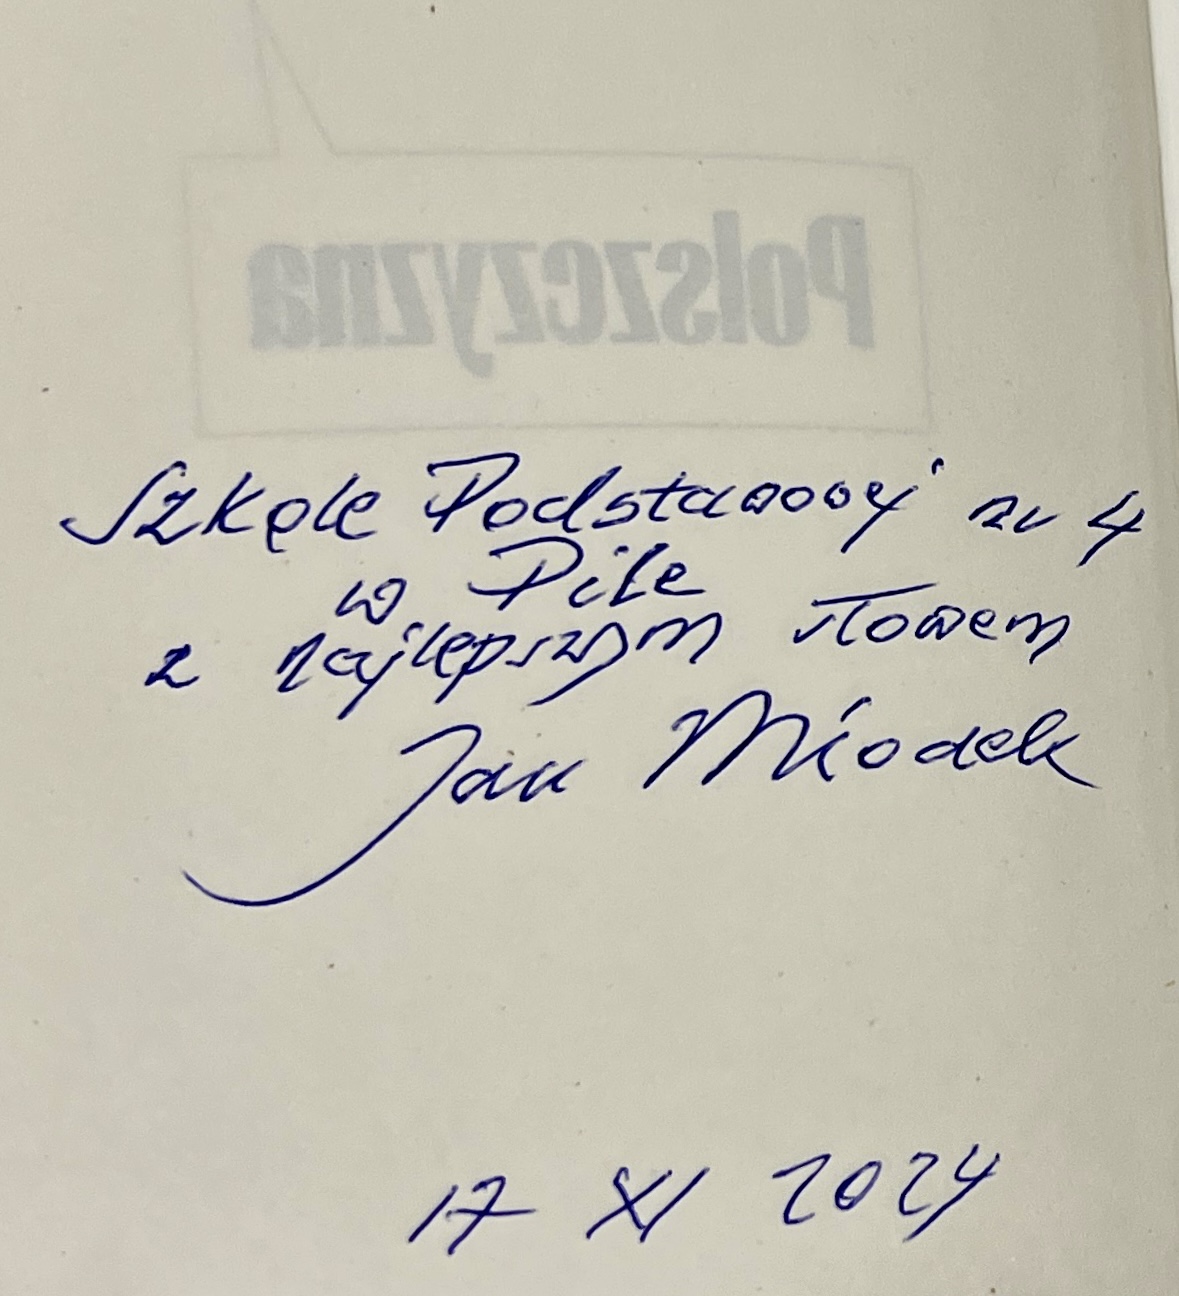 Polszczyzna
Szkole Podstawowej nr 4
w Pile
z najlepszym słowem
Jan Miodek
17 XI 2024